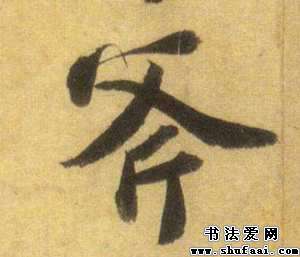 斧
书法爱网
www.shufaai.com